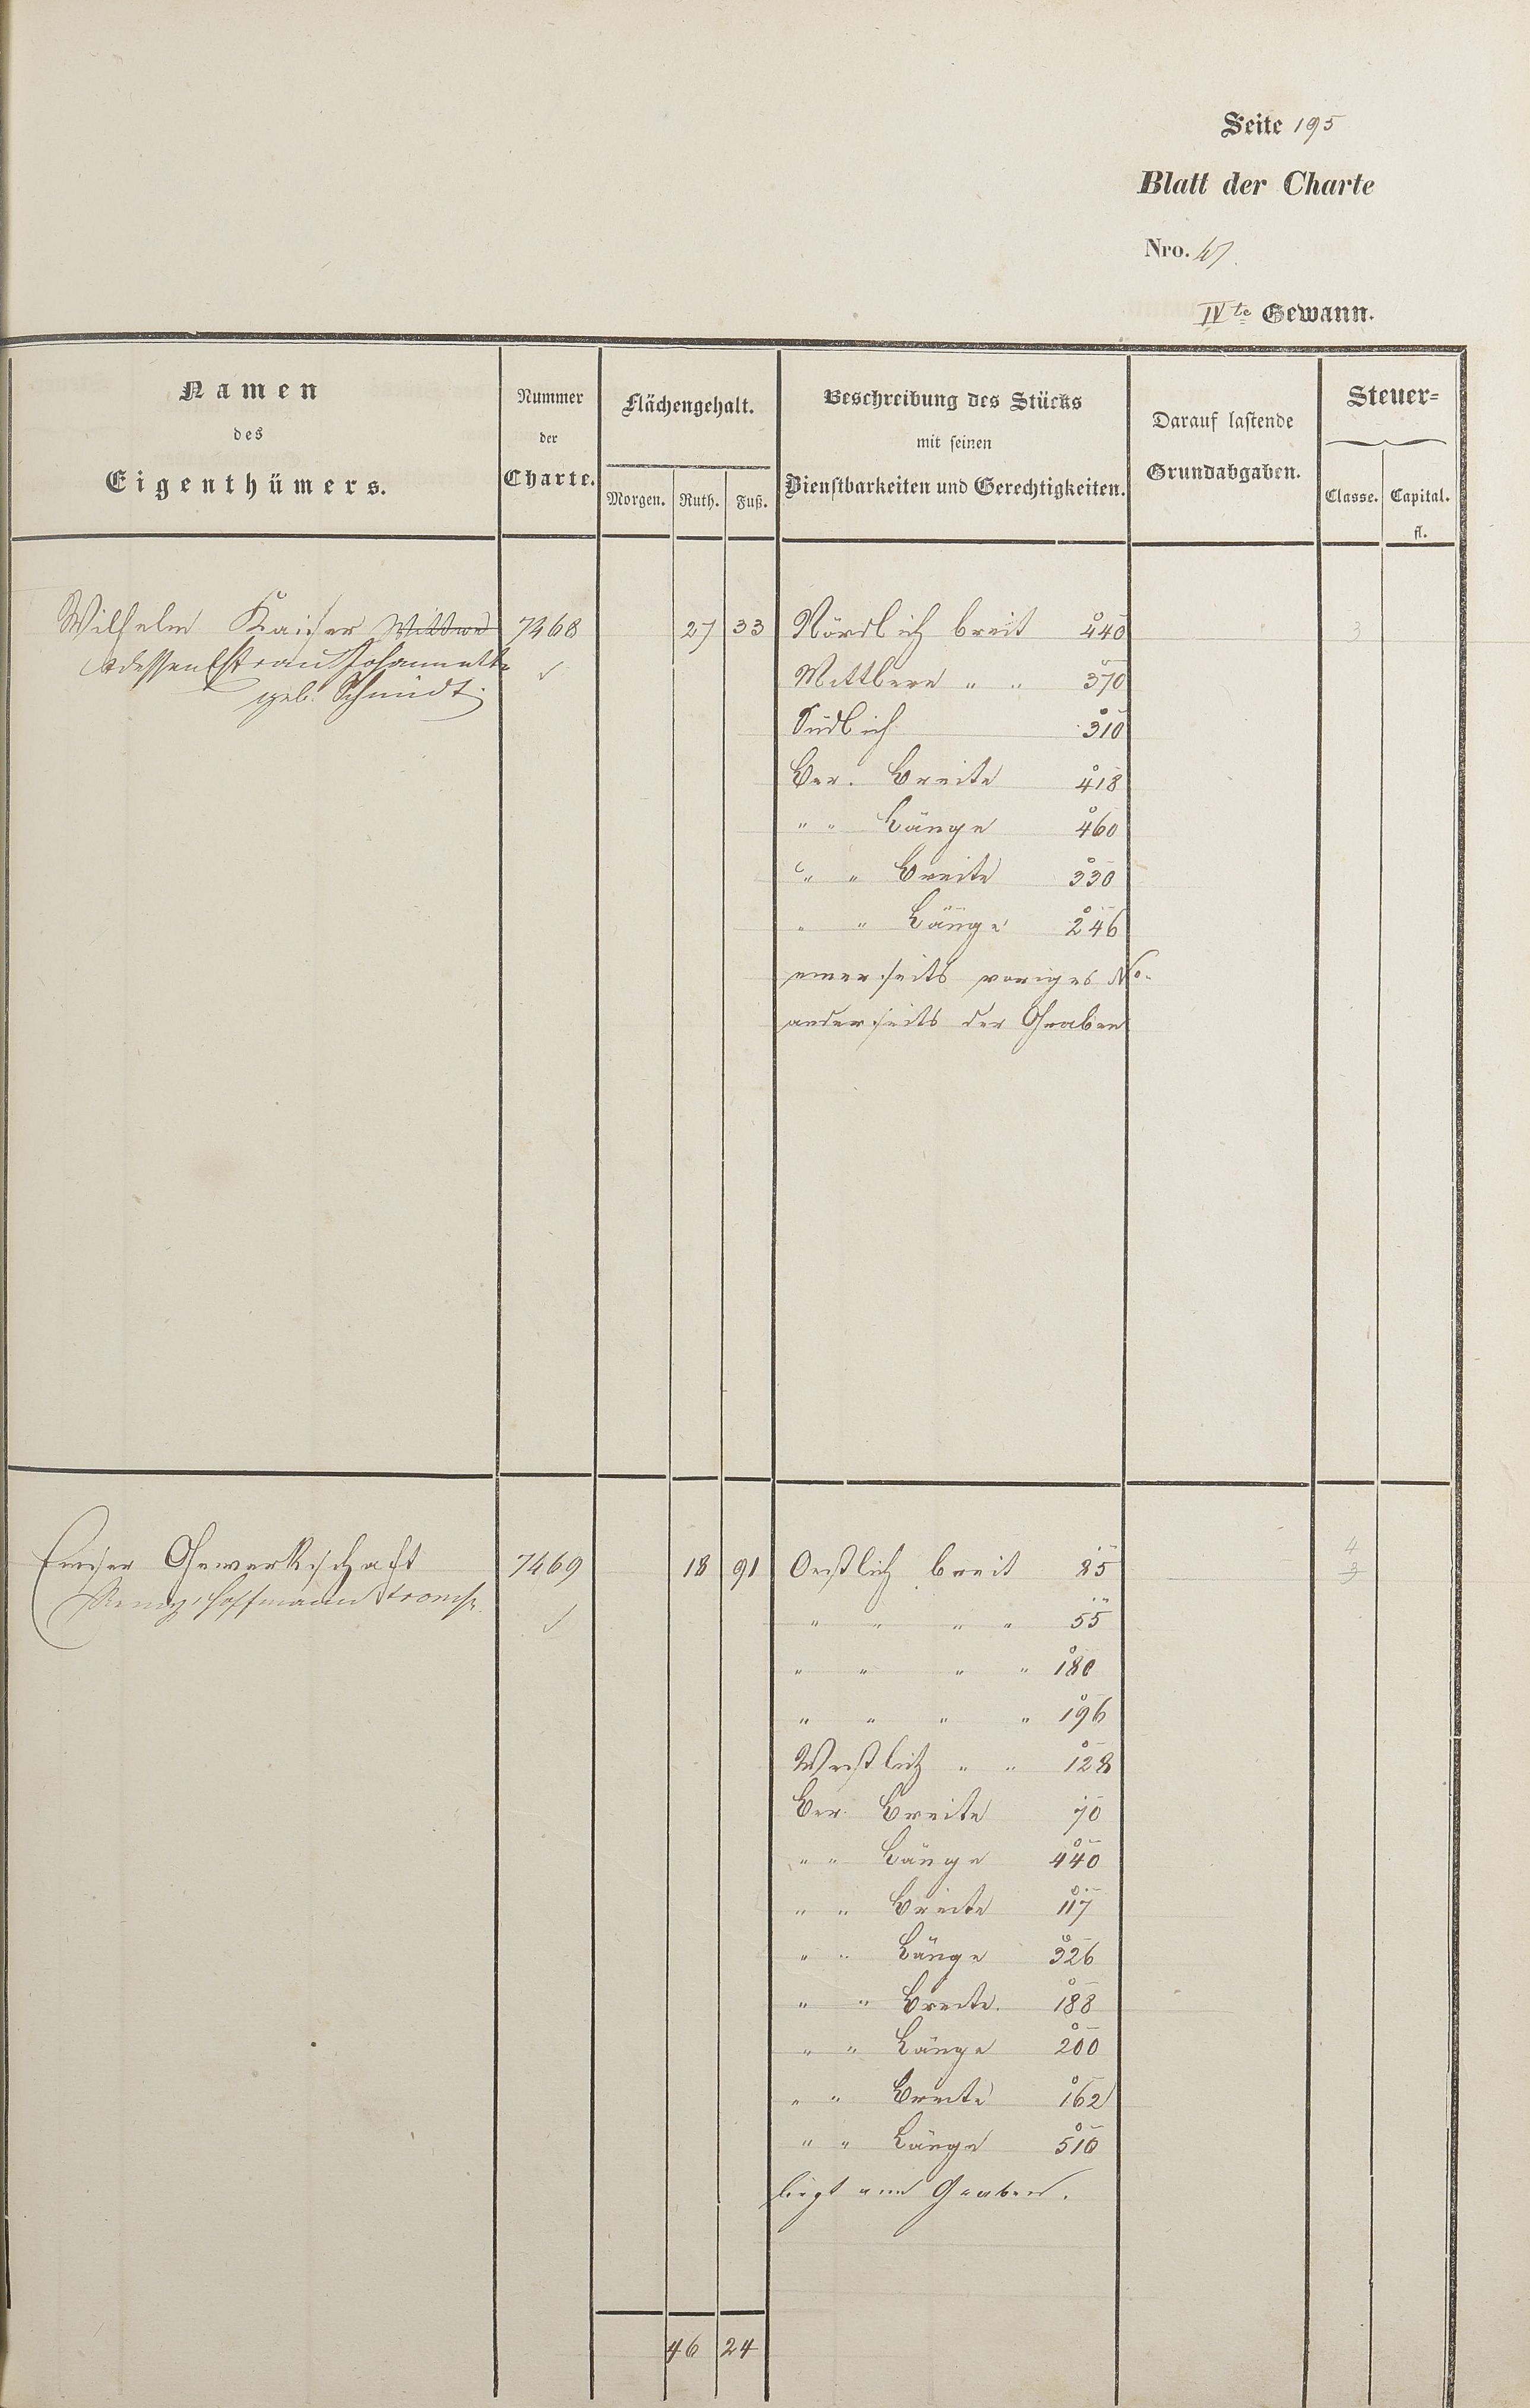 Seite 195
Blatt der Charte
Nro. 47.
IVte Gewann.
Namen
des
Eigenthümers.
Nummer
der
Charte.
Flächengehalt.
Morgen. Ruth. Fuß.
Beschreibung des Stücks
mit seinen
Dienstbarkeiten und Gerechtigkeiten.
Darauf lastende
Grundabgaben.
Steuer-
Classe. Capital.
fl.
Wilhelm Kaiser Wittwe 7468 27 33 Nördlich breit 440 3
dessen Ehefrau Johannette
geb. Schmidt.
Mittlere " " 370
Südlich 310
Ber. Breite 418
" " Länge 460
" " Breite 330
" " Länge 246
einerseits voriges No.
anderseits der Graben
Emser Gewerkschaft 7469 18 91 Oestlich breit 85 4
3
Hoffmann
" " " " 55
" " " " 180
" " " " 196
Westlich " " 128
Ber. Breite 70
" " Länge 440
" " Breite 117
" " Länge 326
" " Breite 188
" " Länge 200
" " Breite 162
" " Länge 510
liegt am Graben.
46 24